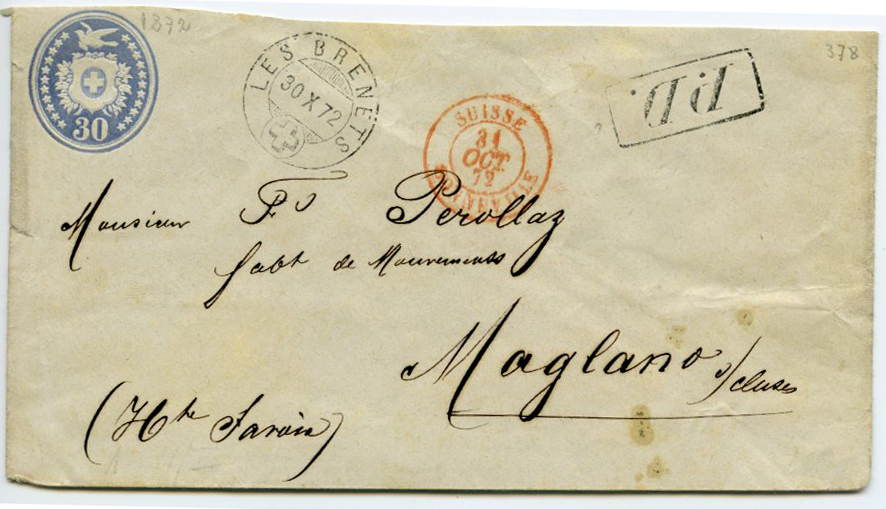 1872
378
30
LES BRENETS
30 X 72
SUISSE
31
OCT
72
BONNEVILLE
P.D.
Monsieur Fs Perollaz
fabt de Mouvements
Magland s/cluses
(Hte Savoie)